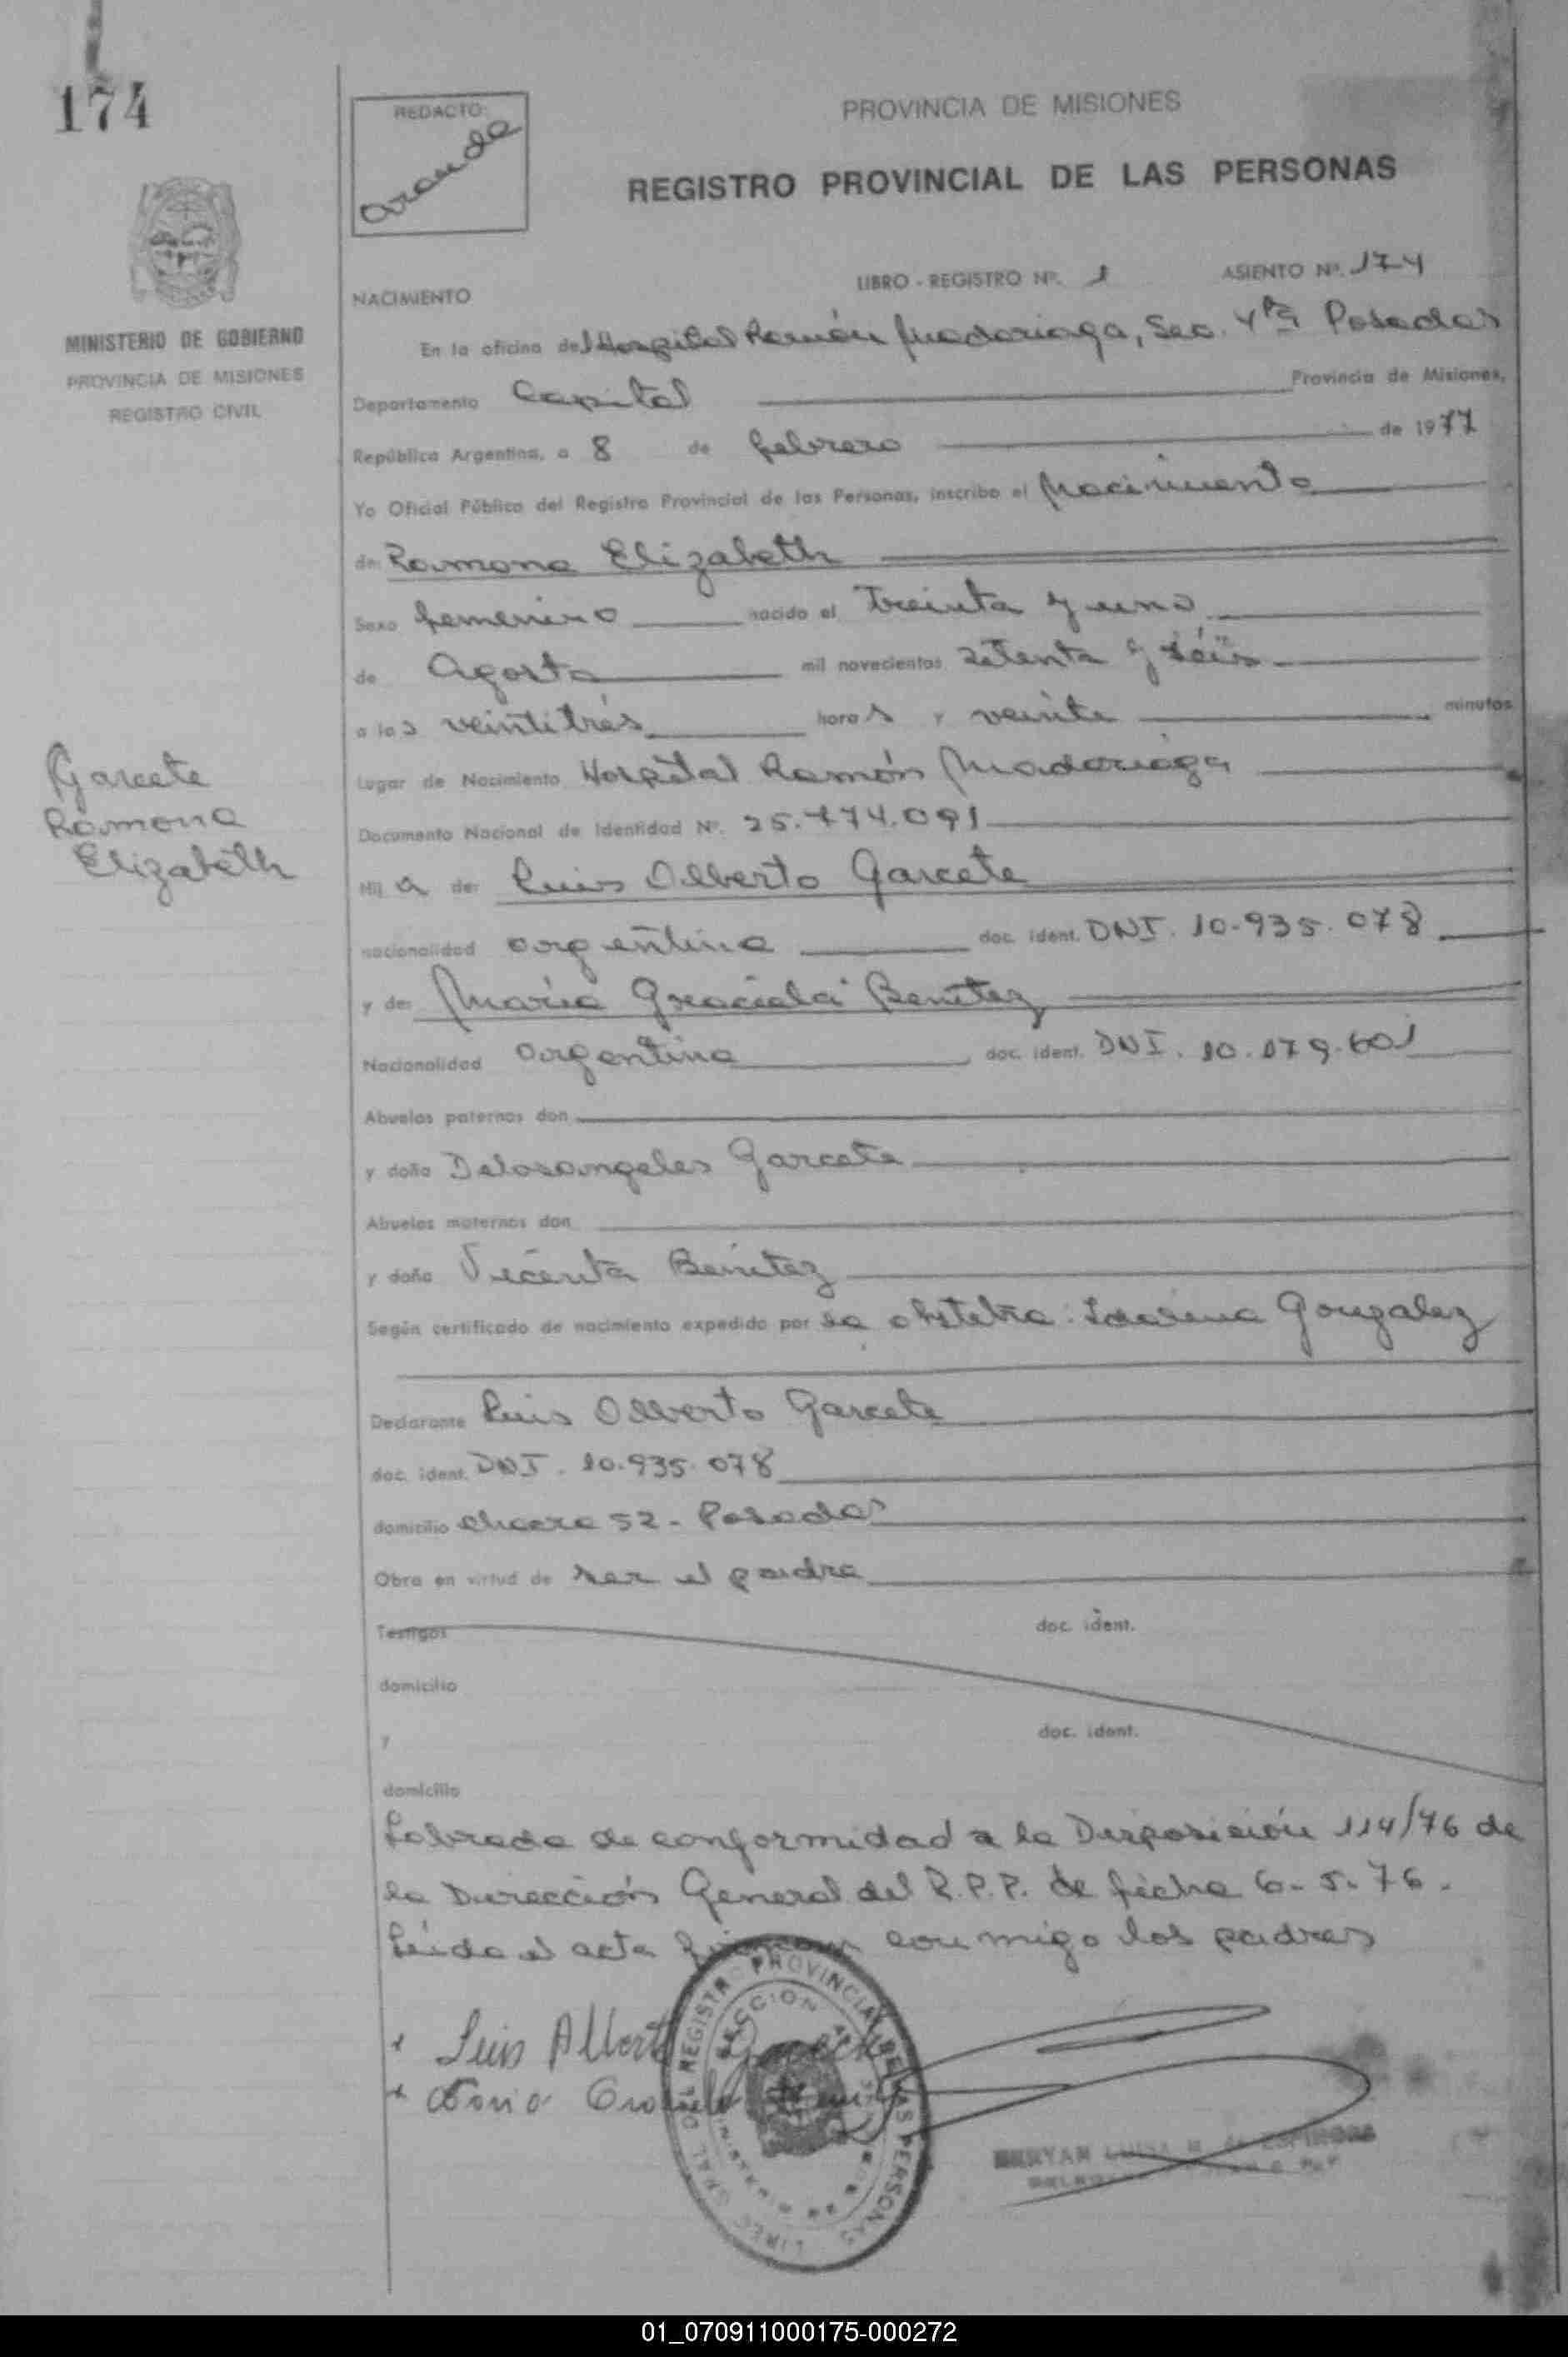 174
REDACTO:
Aranda
PROVINCIA DE MISIONES
REGISTRO PROVINCIAL DE LAS PERSONAS
MINISTERIO DE GOBIERNO
PROVINCIA DE MISIONES
REGISTRO CIVIL
LIBRO - REGISTRO Nº. 1 ASIENTO Nº. 174
NACIMIENTO
En la oficina del Hospital Ramón Madariaga, Sec. 4ta Posadas
Departamento Capital Provincia de Misiones,
República Argentina, a 8 de febrero de 1977
Yo Oficial Público del Registro Provincial de las Personas, inscribo el Nacimiento
de: Ramona Elizabeth
Sexo femenino nacido el Treinta y uno
de Agosto mil novecientos setenta y séis
a las veintitrés horas y veinte minutos
Lugar de Nacimiento Hospital Ramón Madariaga
Garcete
Ramona
Elizabeth
Documento Nacional de Identidad Nº. 25.474.091
Hij a de: Luis Alberto Garcete
nacionalidad argentina doc. ident. DNI. 10.935.078
y de: María Graciela Benítez
Nacionalidad argentina doc. ident. DNI. 10.079.601
Abuelos paternos don
y doña Delosangeles Garcete
Abuelos maternos don
y doña Vicenta Benítez
Según certificado de nacimiento expedido por la obstetra: Gonzalez
Declarante Luis Alberto Garcete
doc. ident. DNI. 10.935.078
domicilio chacra 52 - Posadas
Obra en virtud de ser el padre
Testigos doc. ident.
domicilio
y doc. ident.
domicilio
Labrada de conformidad a la Disposición 114/76 de
la Dirección General del R.P.P. de fecha 6-5-76.
Leída el acta firman conmigo los padres
Luis Alberto Garcete
REGISTRO PROVINCIAL DE LAS PERSONAS
LUISA M. de ESPINOSA
01_070911000175-000272